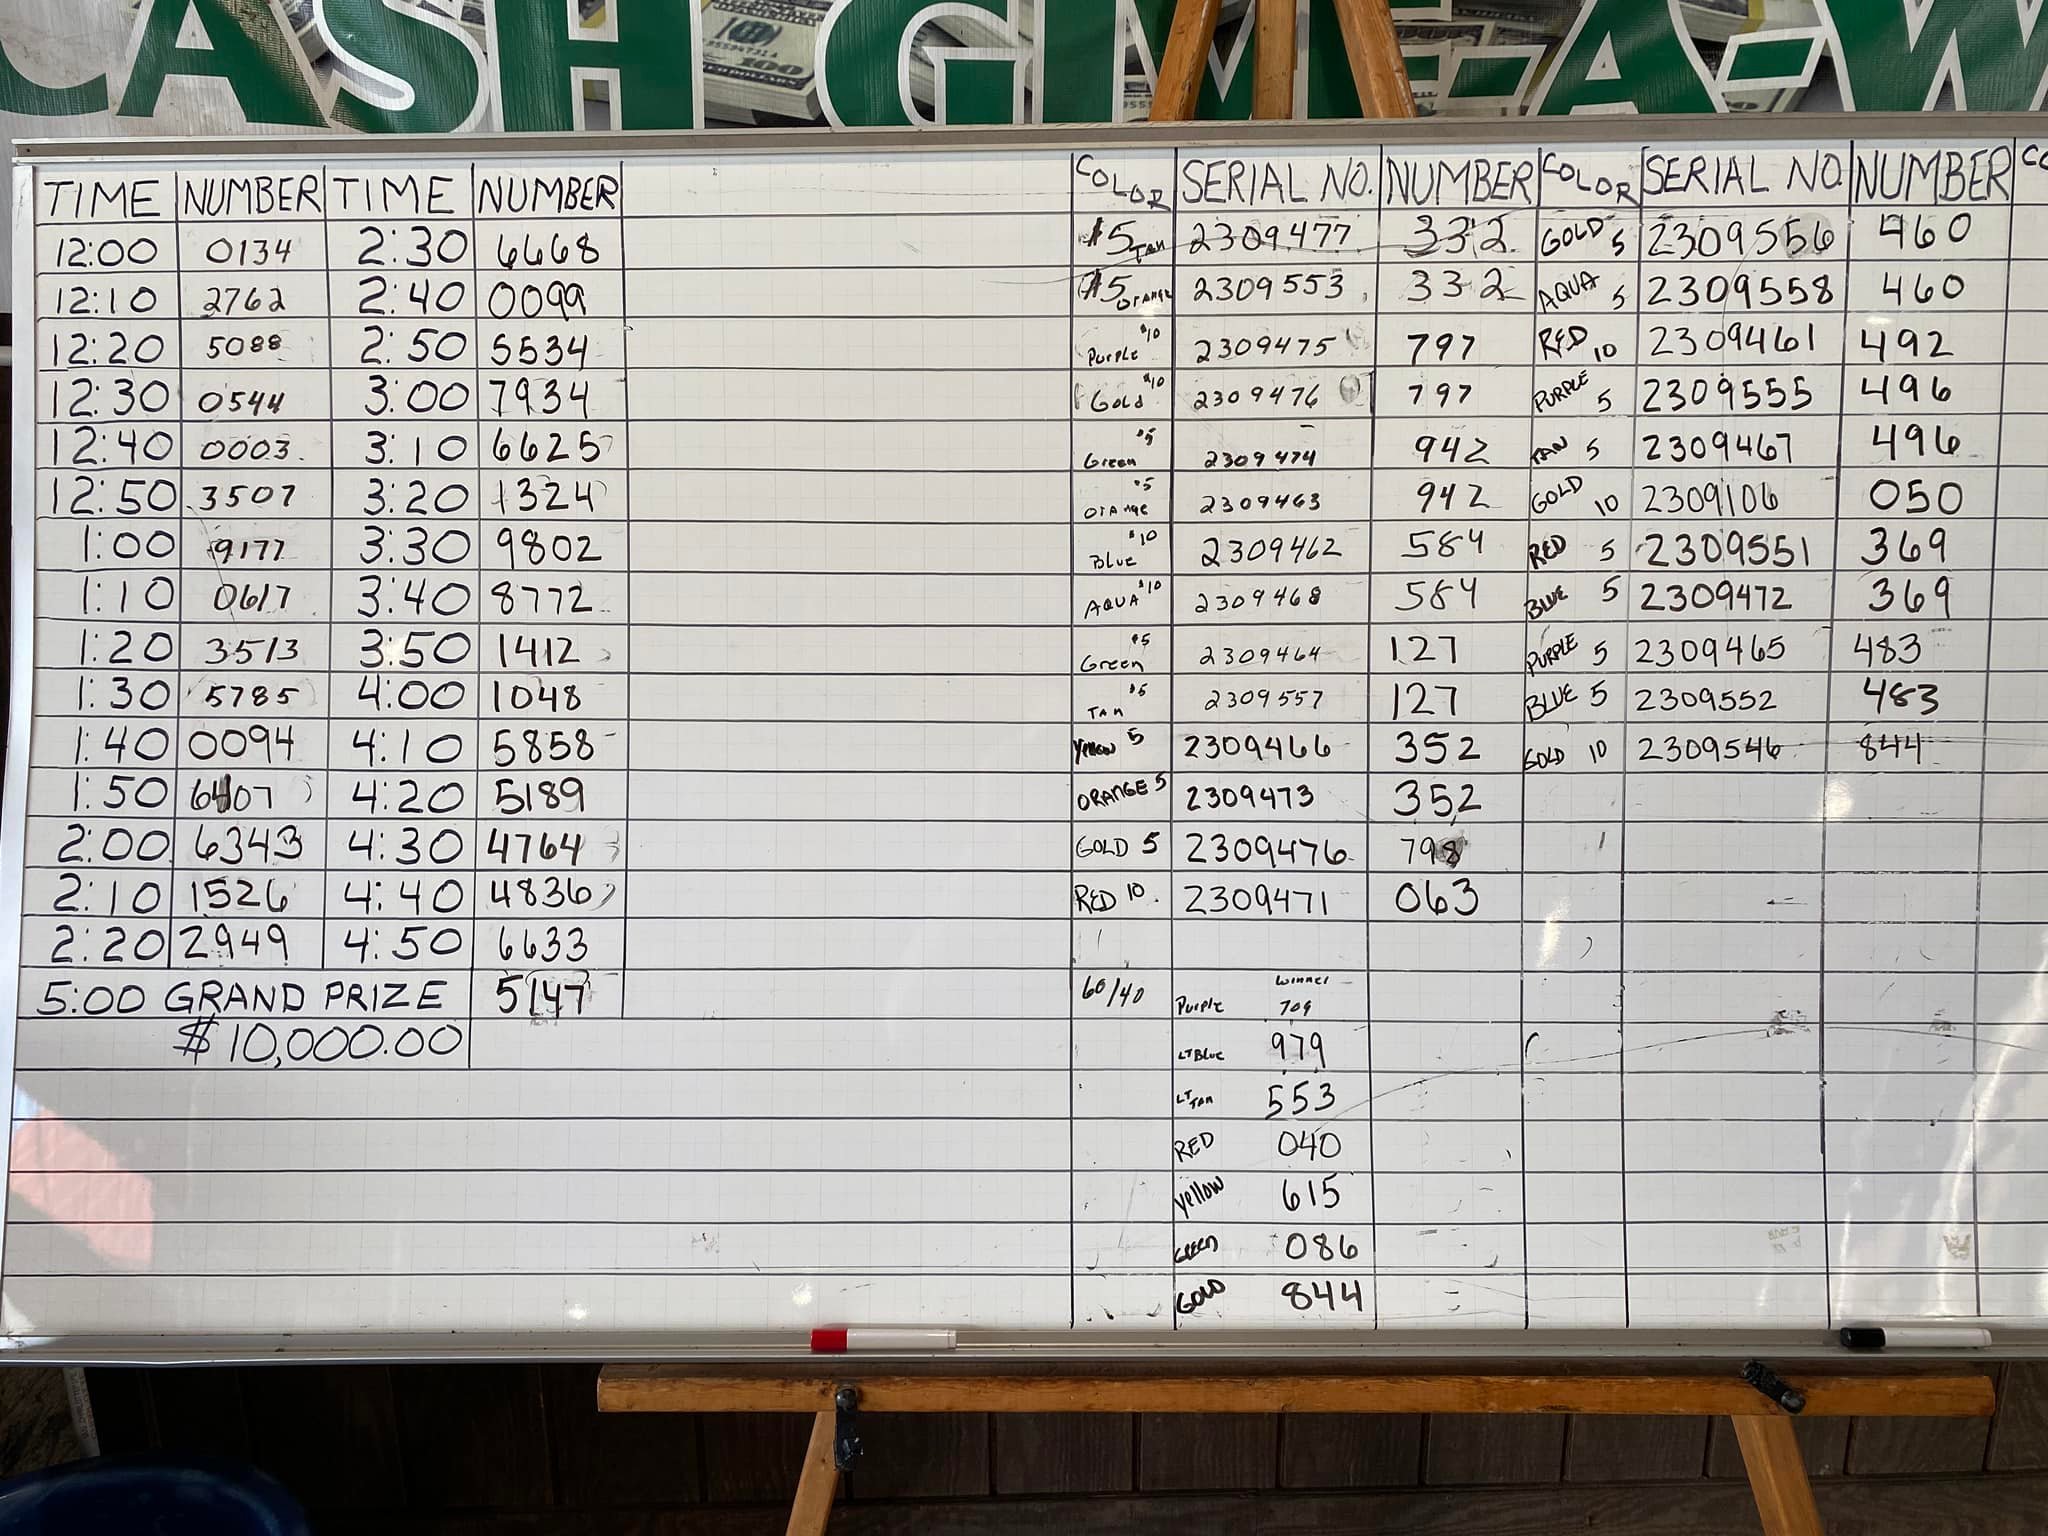 CASH GIVE-A-W
TIME NUMBER TIME NUMBER COLOR SERIAL NO. NUMBER COLOR SERIAL NO. NUMBER CO
12:00 0134 2:30 6668 $5 TAN 2309477 332 GOLD 5 2309556 460
12:10 2762 2:40 0099 $5 Orange 2309553 332 AQUA 5 2309558 460
12:20 5088 2:50 5534 Purple $10 2309475 797 RED 10 2309461 492
12:30 0544 3:00 7934 Gold $10 2309476 797 PURPLE 5 2309555 496
12:40 0003 3:10 6625 Green $5 2309474 942 TAN 5 2309467 496
12:50 3507 3:20 1324 Orange $5 2309463 942 GOLD 10 2309106 050
1:00 9177 3:30 9802 Blue $10 2309462 584 RED 5 2309551 369
1:10 0617 3:40 8772 AQUA $10 2309468 584 BLUE 5 2309472 369
1:20 3513 3:50 1412 Green $5 2309464 127 PURPLE 5 2309465 483
1:30 5785 4:00 1048 TAN $5 2309557 127 BLUE 5 2309552 483
1:40 0094 4:10 5858 Yellow 5 2309466 352 GOLD 10 2309546 844
1:50 6407 4:20 5189 ORANGE 5 2309473 352
2:00 6343 4:30 4764 GOLD 5 2309476 798
2:10 1526 4:40 4836 RED 10 2309471 063
2:20 2949 4:50 6633
5:00 GRAND PRIZE 5147 60/40 Purple winner 709
$10,000.00 LT Blue 979
LT TAN 553
RED 040
Yellow 615
GREEN 086
GOLD 844